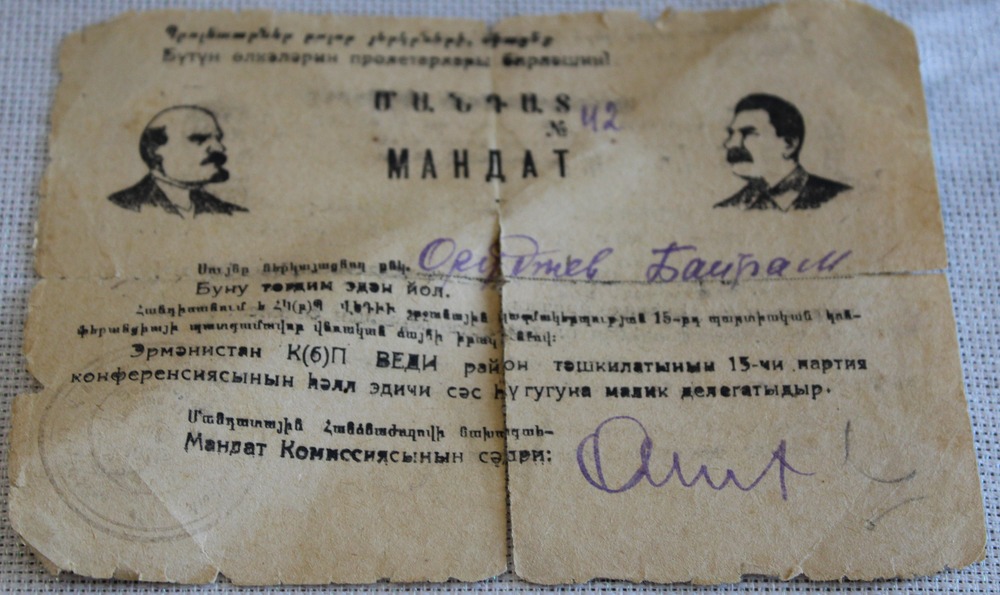 Պրոլետարներ բոլոր յերկրների, միացե՛ք
Бүтүн өлкәләрин пролетарлары бирләшин!
ՄԱՆԴԱՏ
№ 42
МАНДАТ
Սույնը ներկայացնող ընկ. Оруджев Байрам
Буну тәгдим эдән йол.
Հանդիսանում է ՀԿ(բ)Պ ՎԵԴԻԻ շրջանային կազմակերպության 15-րդ պարտիական կոն-
ֆերանցիայի պատգամավոր վճռական ձայնի իրավունքով:
Эрмәнистан К(б)П ВЕДИ район тәшкилатынын 15-чи партия
конференсиясынын һәлл эдичи сәс һүгугуна малик делегатыдыр.
Մանդատային Հանձնաժողովի նախագահ-
Мандат Комиссиясынын сәдри: